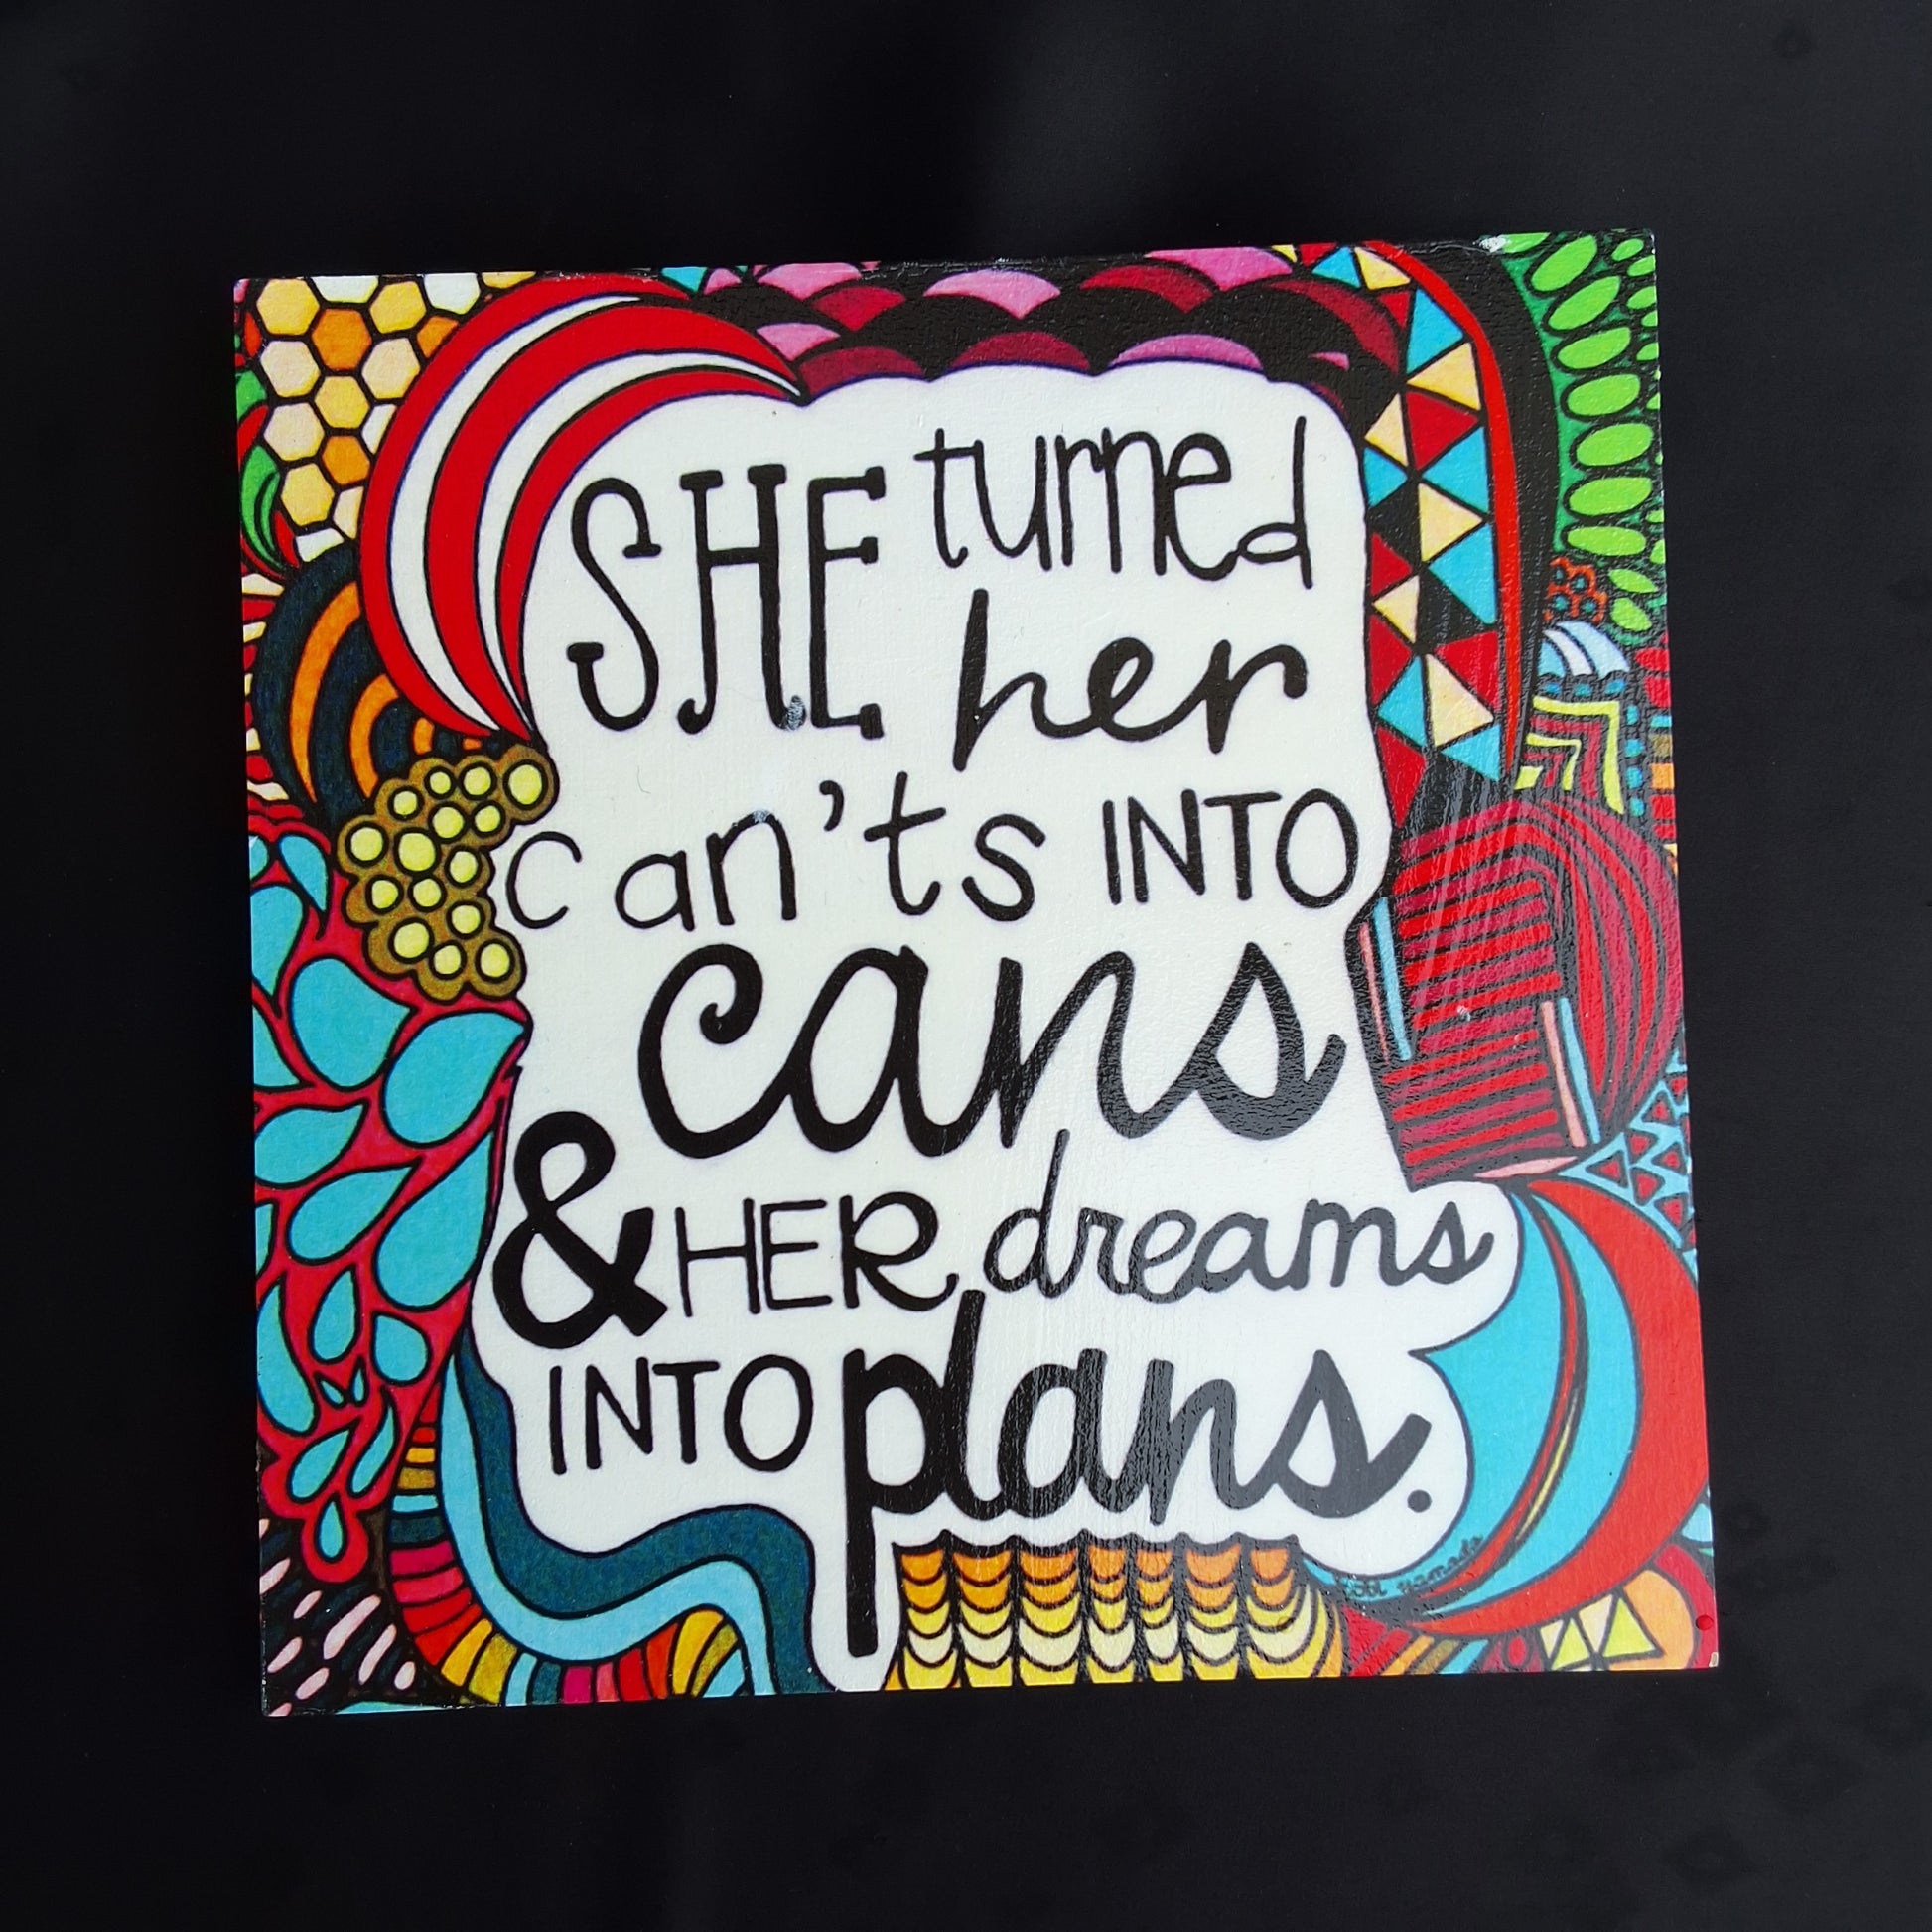 SHE turned
her
can'ts INTO
cans
& HER dreams
INTO plans.